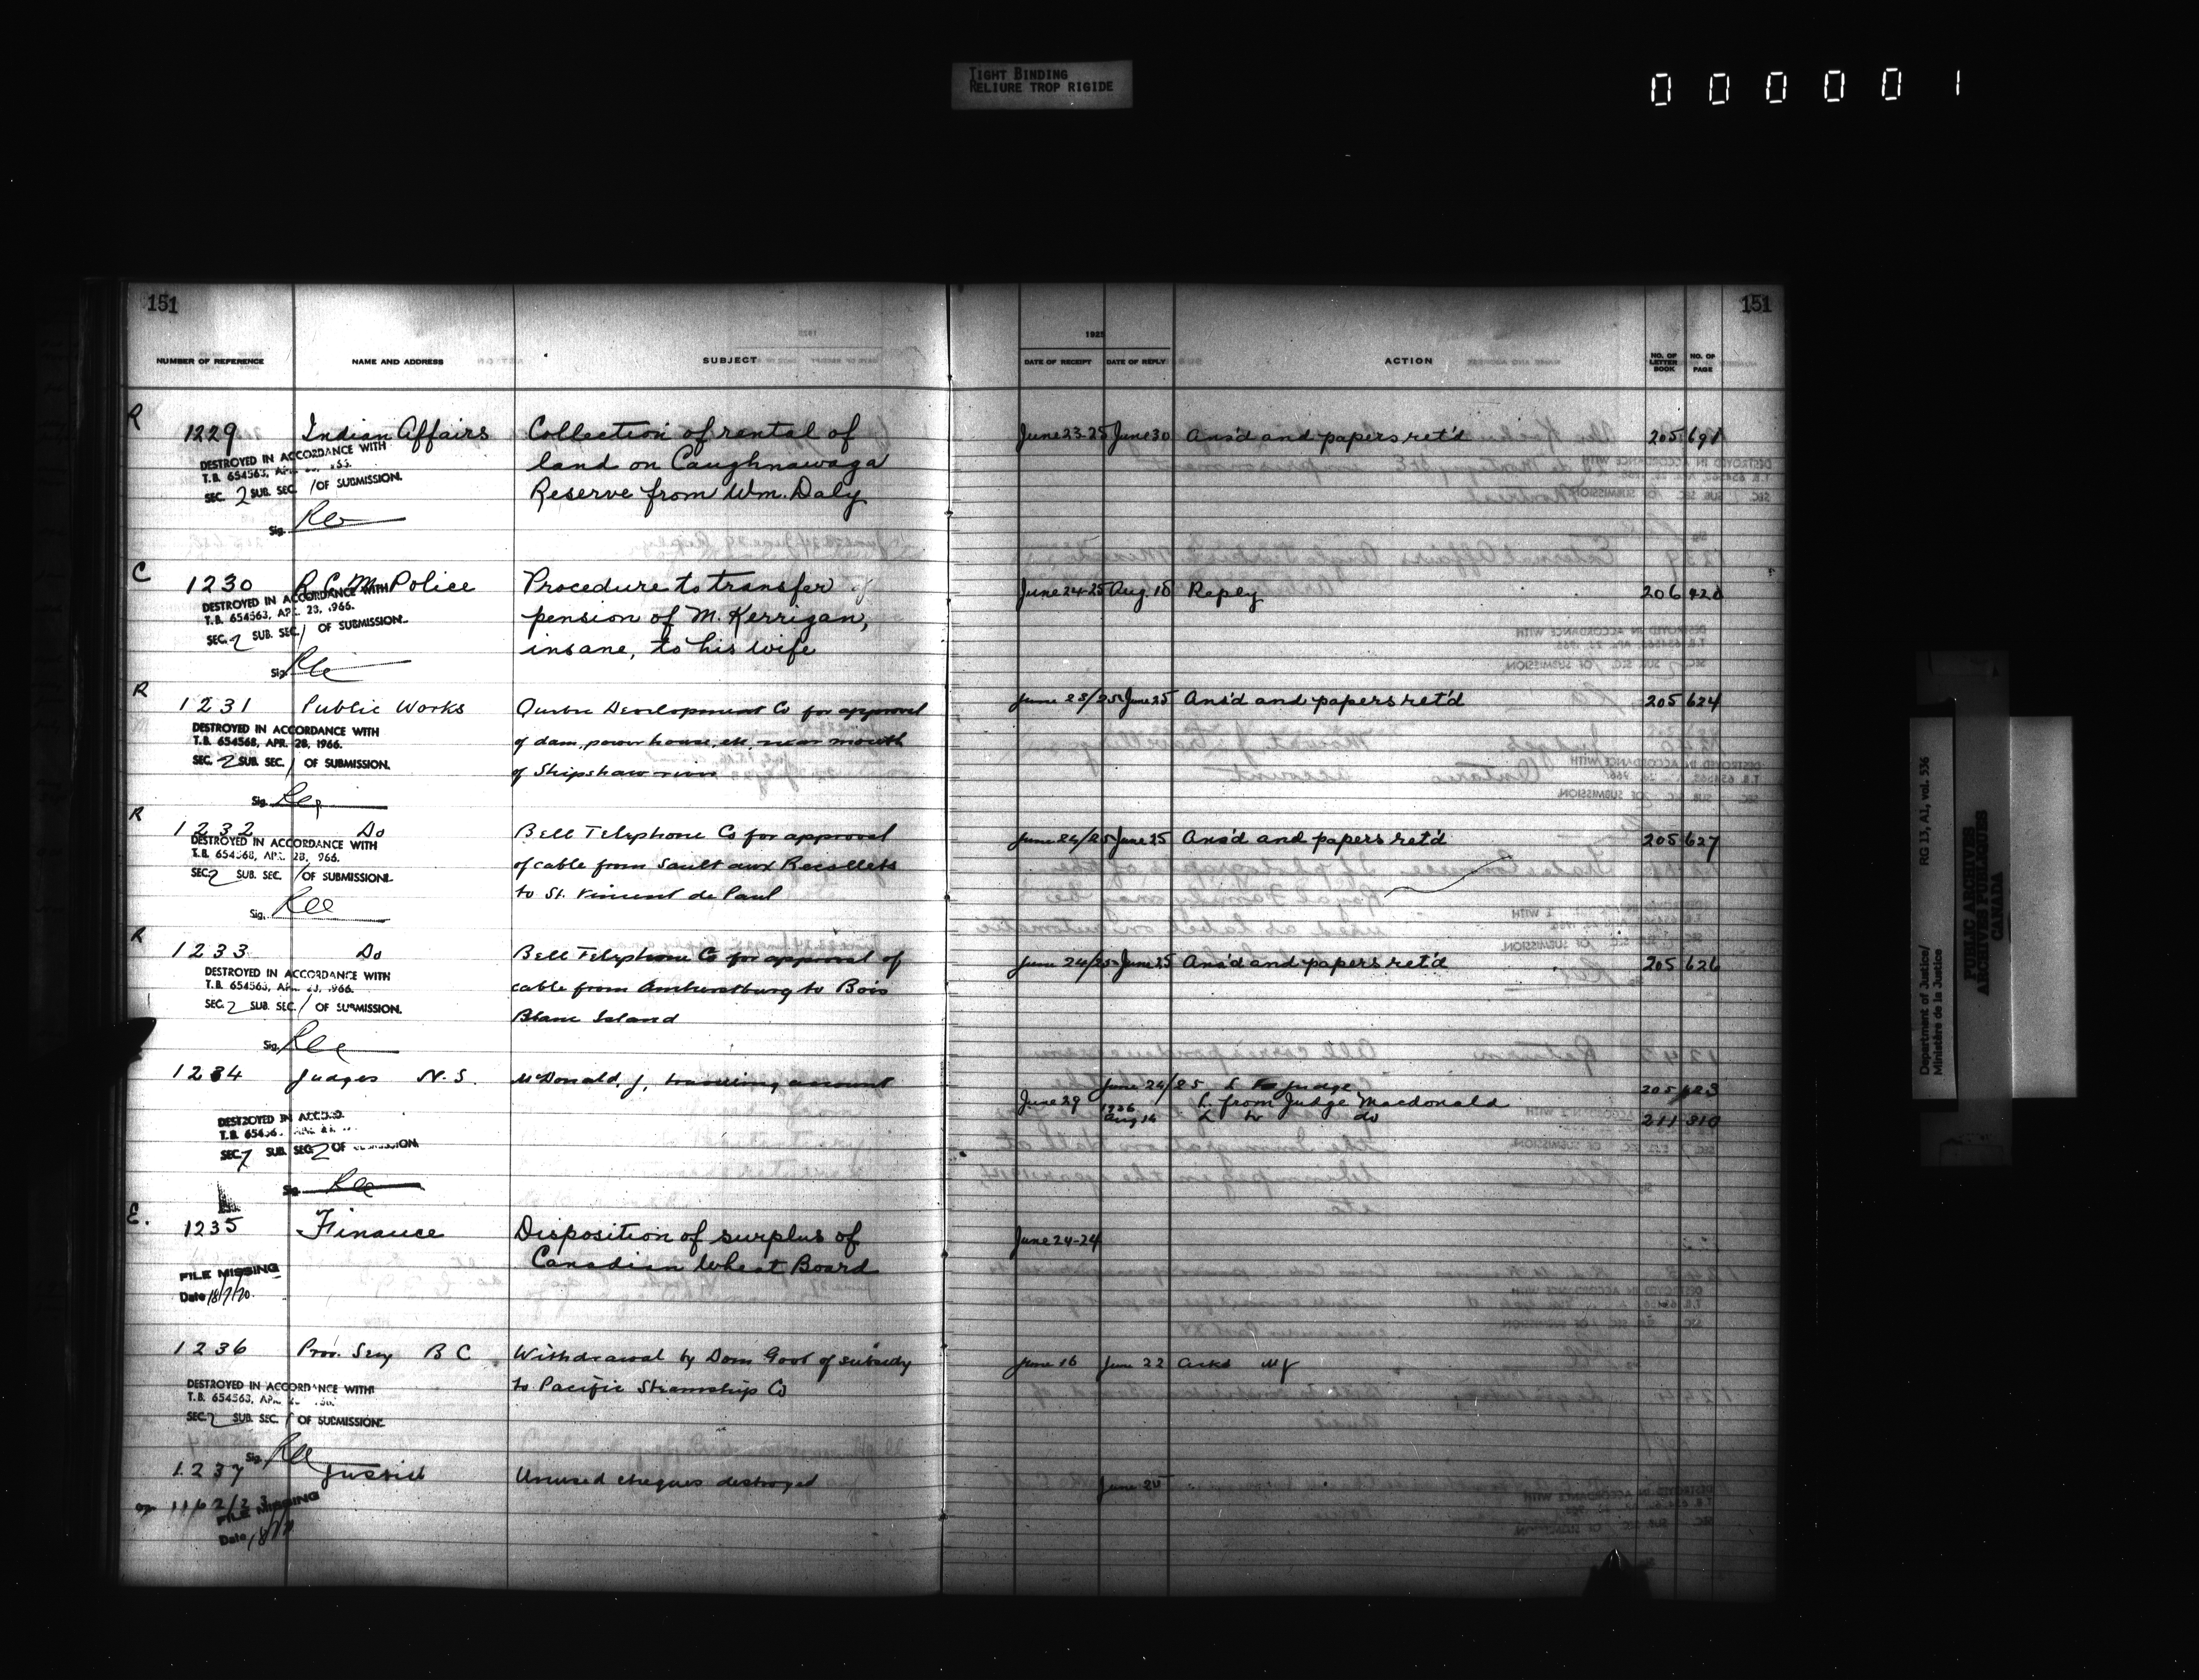 TIGHT BINDING
RELIURE TROP RIGIDE
0 0 0 0 0 1
151
151
NUMBER OF REFERENCE NAME AND ADDRESS SUBJECT 1925 DATE OF RECEIPT DATE OF REPLY ACTION NO. OF LETTER BOOK NO. OF PAGE
R
1229 Indian Affairs Collection of rental of June 23-25 June 30 Ans'd and papers ret'd 205 691
land on Caughnawaga
Reserve from Wm. Daly
DESTROYED IN ACCORDANCE WITH
T.B. 654563, APR.
SEC. 2 SUB. SEC. 1 OF SUBMISSION.
Sig.
C
1230 R.C.M. Police Procedure to transfer June 24-25 Aug. 18 Reply 206
pension of M. Kerrigan,
insane, to his wife
DESTROYED IN ACCORDANCE WITH
T.B. 654563, APR. 23, 1966.
SEC. 2 SUB. SEC. 1 OF SUBMISSION.
Sig.
R
1231 Public Works Development Co for approval June 23/25 June 25 Ans'd and papers ret'd 205 624
of dam, power house, etc. near mouth
of Shipshaw
DESTROYED IN ACCORDANCE WITH
T.B. 654568, APR. 28, 1966.
SEC. 2 SUB. SEC. 1 OF SUBMISSION.
Sig.
R
1232 Do Bell Telephone Co for approval June 24/25 June 25 Ans'd and papers ret'd 205 627
of cable from Sault aux Recollets
to St. Vincent de Paul
DESTROYED IN ACCORDANCE WITH
T.B. 654568, APR. 28, 966.
SEC. 2 SUB. SEC. 1 OF SUBMISSION.
Sig.
R
1233 Do Bell Telephone Co for approval of June 24/25 June 25 Ans'd and papers ret'd 205 626
cable from Amherstburg to Bois
Blanc Island
DESTROYED IN ACCORDANCE WITH
T.B. 654563, 1966.
SEC. 2 SUB. SEC. 1 OF SUBMISSION.
Sig.
1234 Judges N.S. McDonald, J, travelling account June 24/25 L to Judge 205
June 29 L. from Judge Macdonald
1926 Aug 14 L to do 211 310
DESTROYED IN ACCORD.
T.B.
SUB. SEC. 2 OF SUBMISSION.
Sig.
E.
1235 Finance Disposition of surplus of June 24-24
Canadian Wheat Board
FILE MISSING
Date 18/7/70.
1236 Prov. Secy B C Withdrawal by Dom Govt of subsidy June 16 June 22 Ackd
to Pacific Steamship Co
DESTROYED IN ACCORDANCE WITH
T.B. 654563, APR.
SEC. 2 SUB. SEC. 1 OF SUBMISSION.
Sig.
1237 Justice Unused cheques destroyed June 25
1162/23
FILE MISSING
Date
Department of Justice/
Ministère de la Justice
RG 13, A1, vol. 536
PUBLIC ARCHIVES
ARCHIVES PUBLIQUES
CANADA